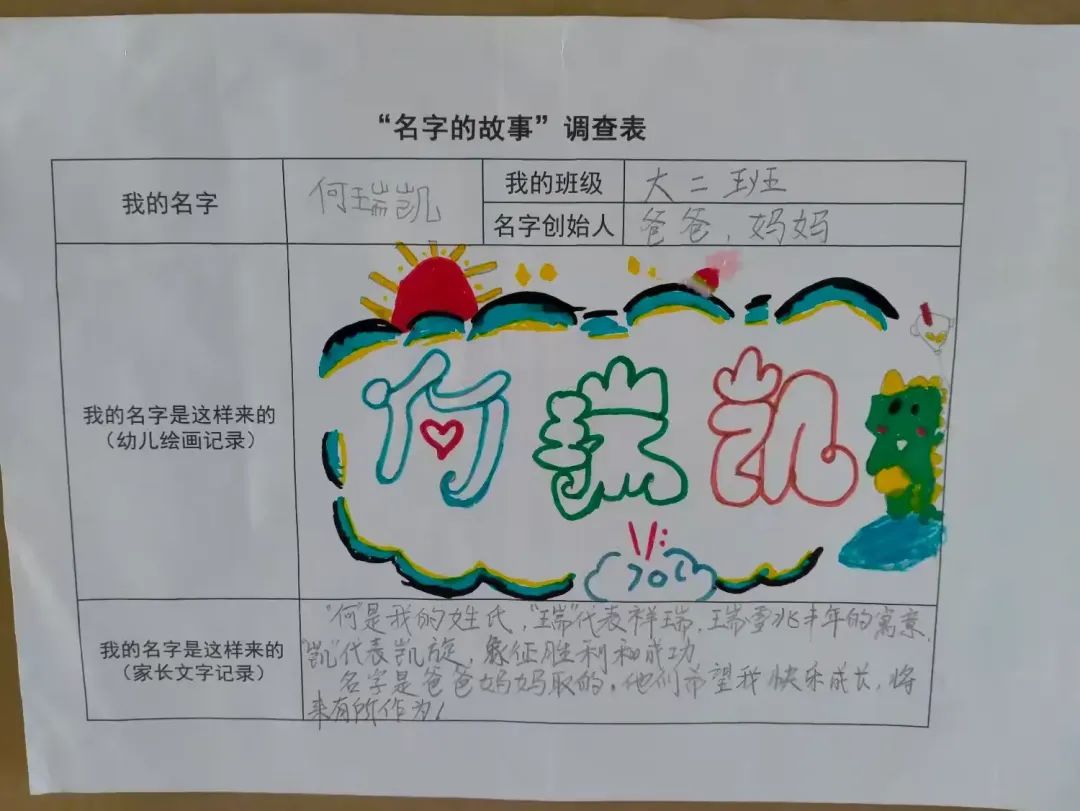 “名字的故事”调查表
我的名字
何瑞凯
我的班级
大二班
名字创始人
爸爸、妈妈
我的名字是这样来的
（幼儿绘画记录）
何瑞凯
我的名字是这样来的
（家长文字记录）
“何”是我的姓氏，“瑞”代表祥瑞，瑞雪兆丰年的寓意，
“凯”代表凯旋，象征胜利和成功
名字是爸爸妈妈取的，他们希望我快乐成长，将
来有所作为！